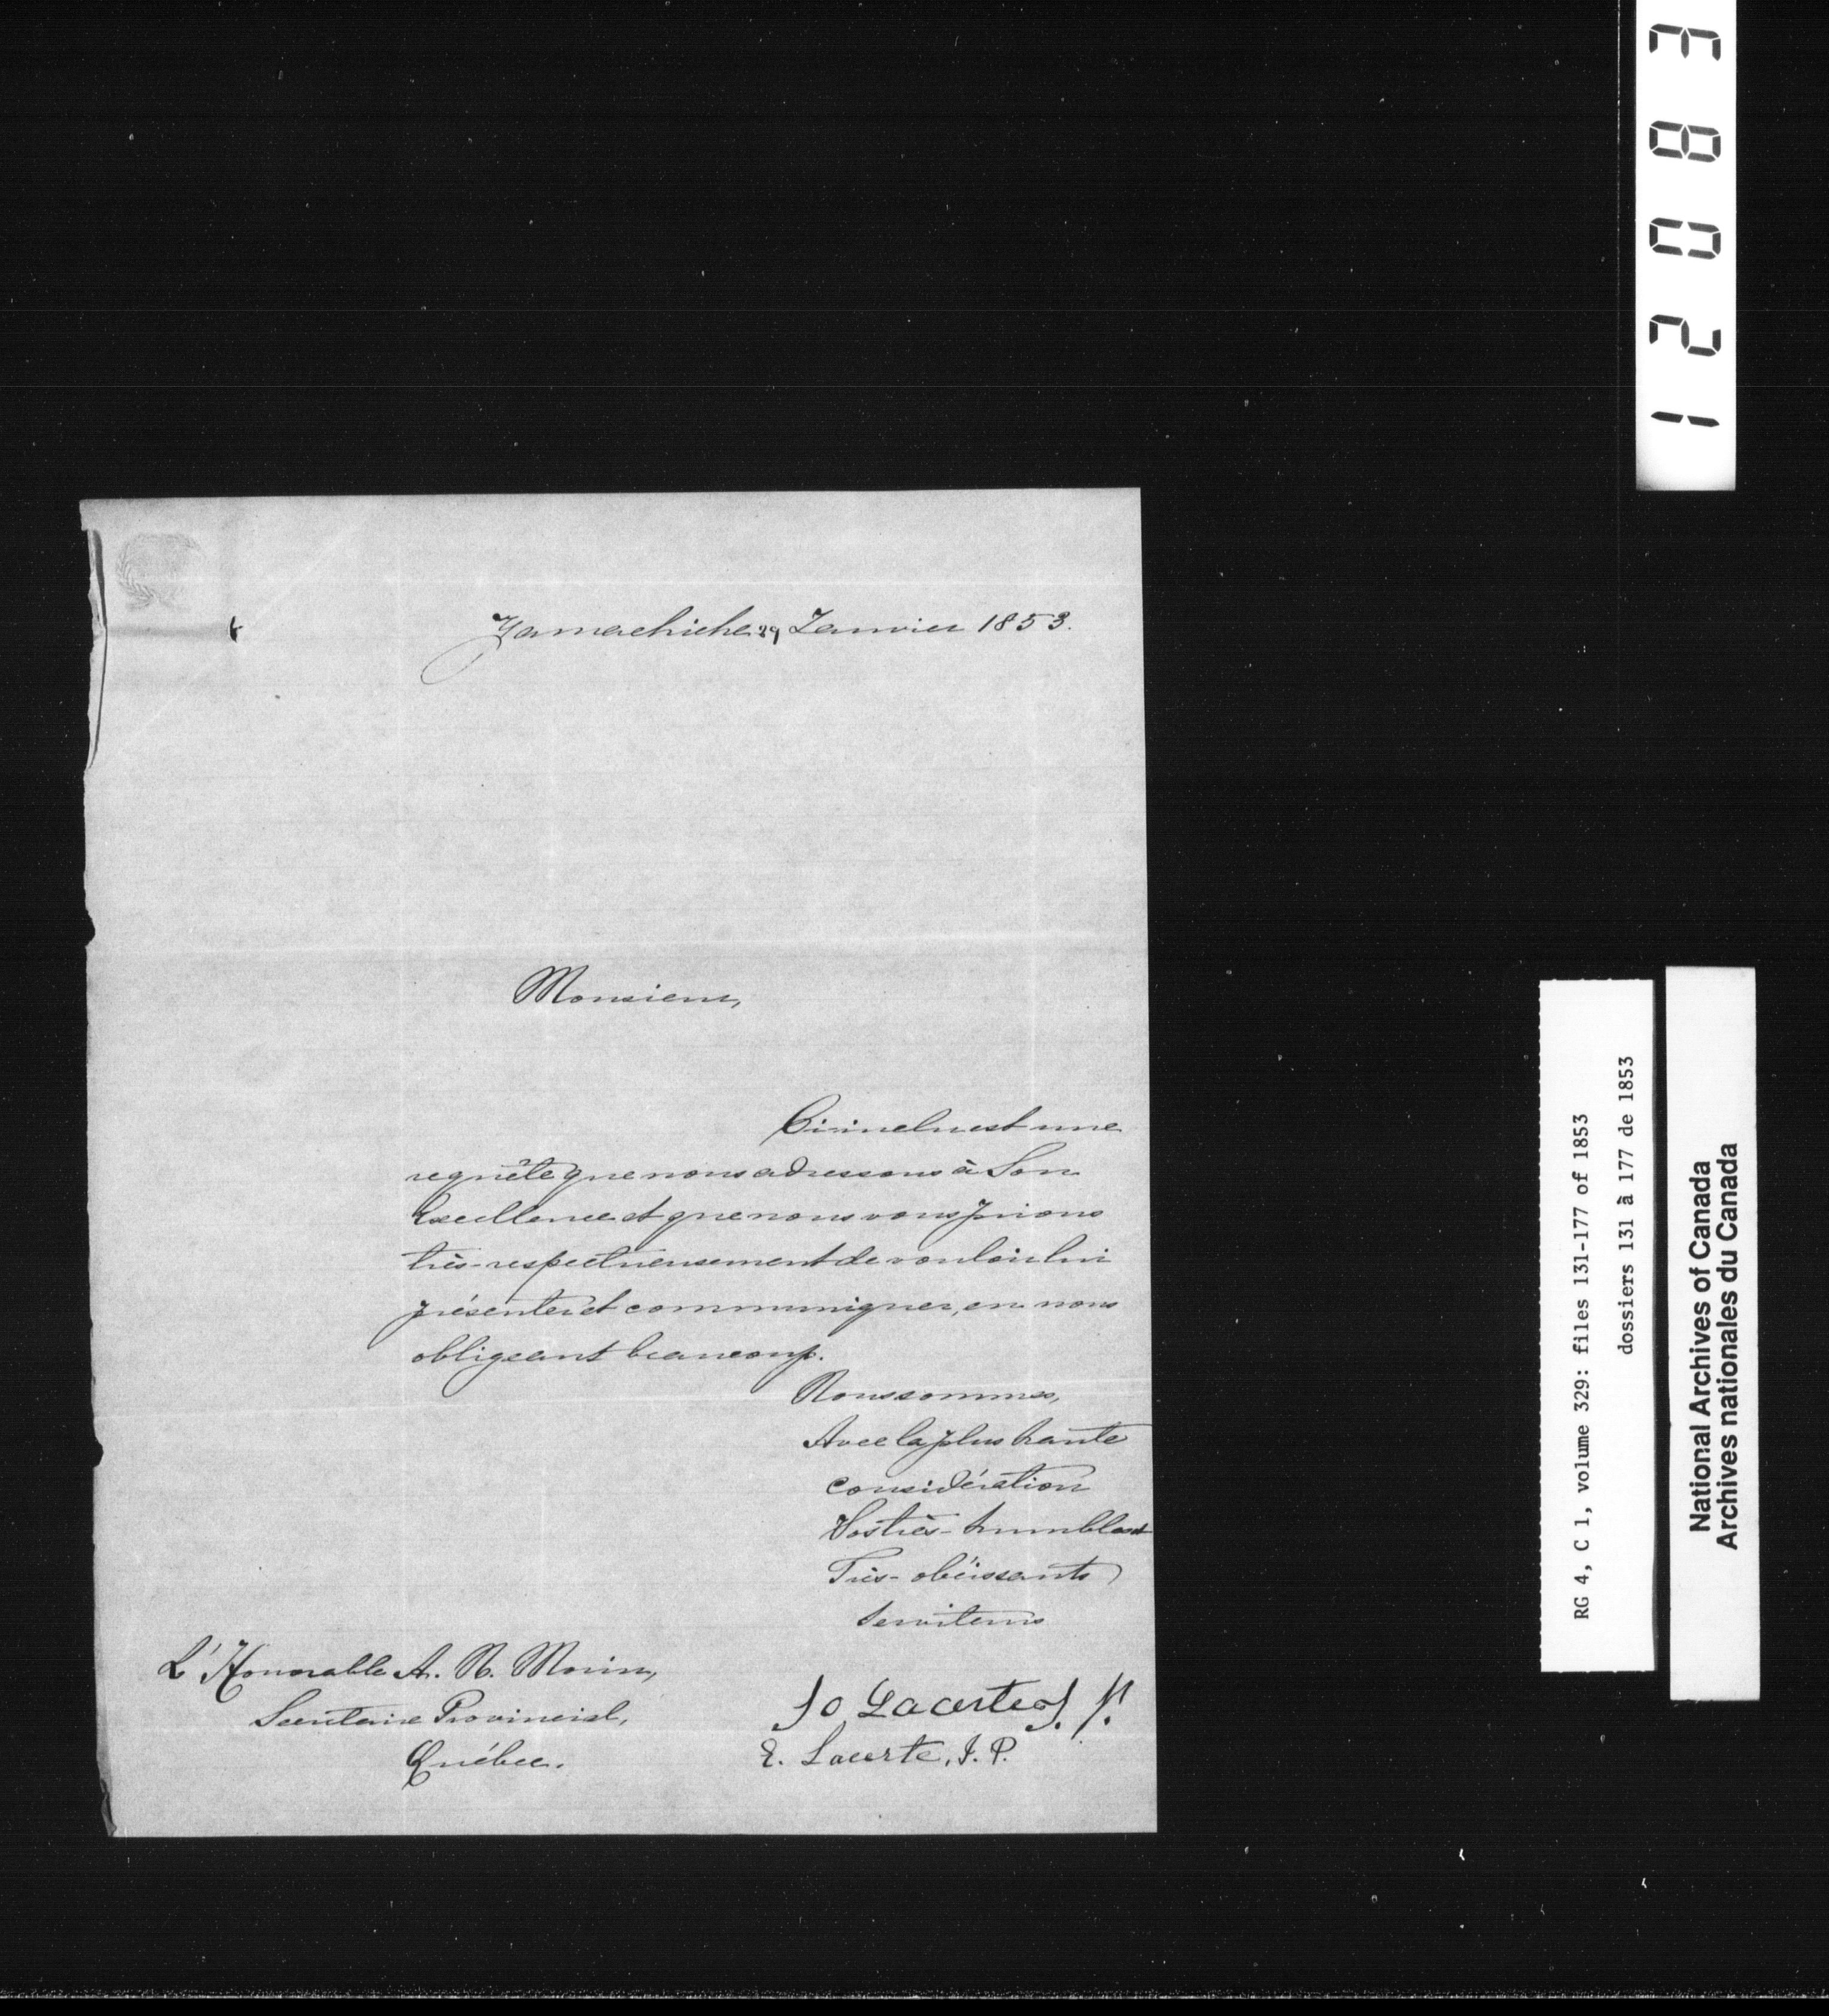 Yamachiche 29 Janvier 1853.
Monsieur,
Ci-inclus est une
requête que nous adressons à Son
Excellence et que nous vous prions
très-respectueusement de vouloir lui
présenter et communiquer, en nous
obligeant beaucoup.
Nous sommes,
Avec la plus haute
considération
Vos très-humbles et
Très-obéissants
serviteurs
L'Honorable A. N. Morin,
Secrétaire Provincial,
Québec.
Lacerte J. P.
E. Lacerte, J. P.
12083
RG 4, C 1, volume 329: files 131-177 of 1853
dossiers 131 à 177 de 1853
National Archives of Canada
Archives nationales du Canada